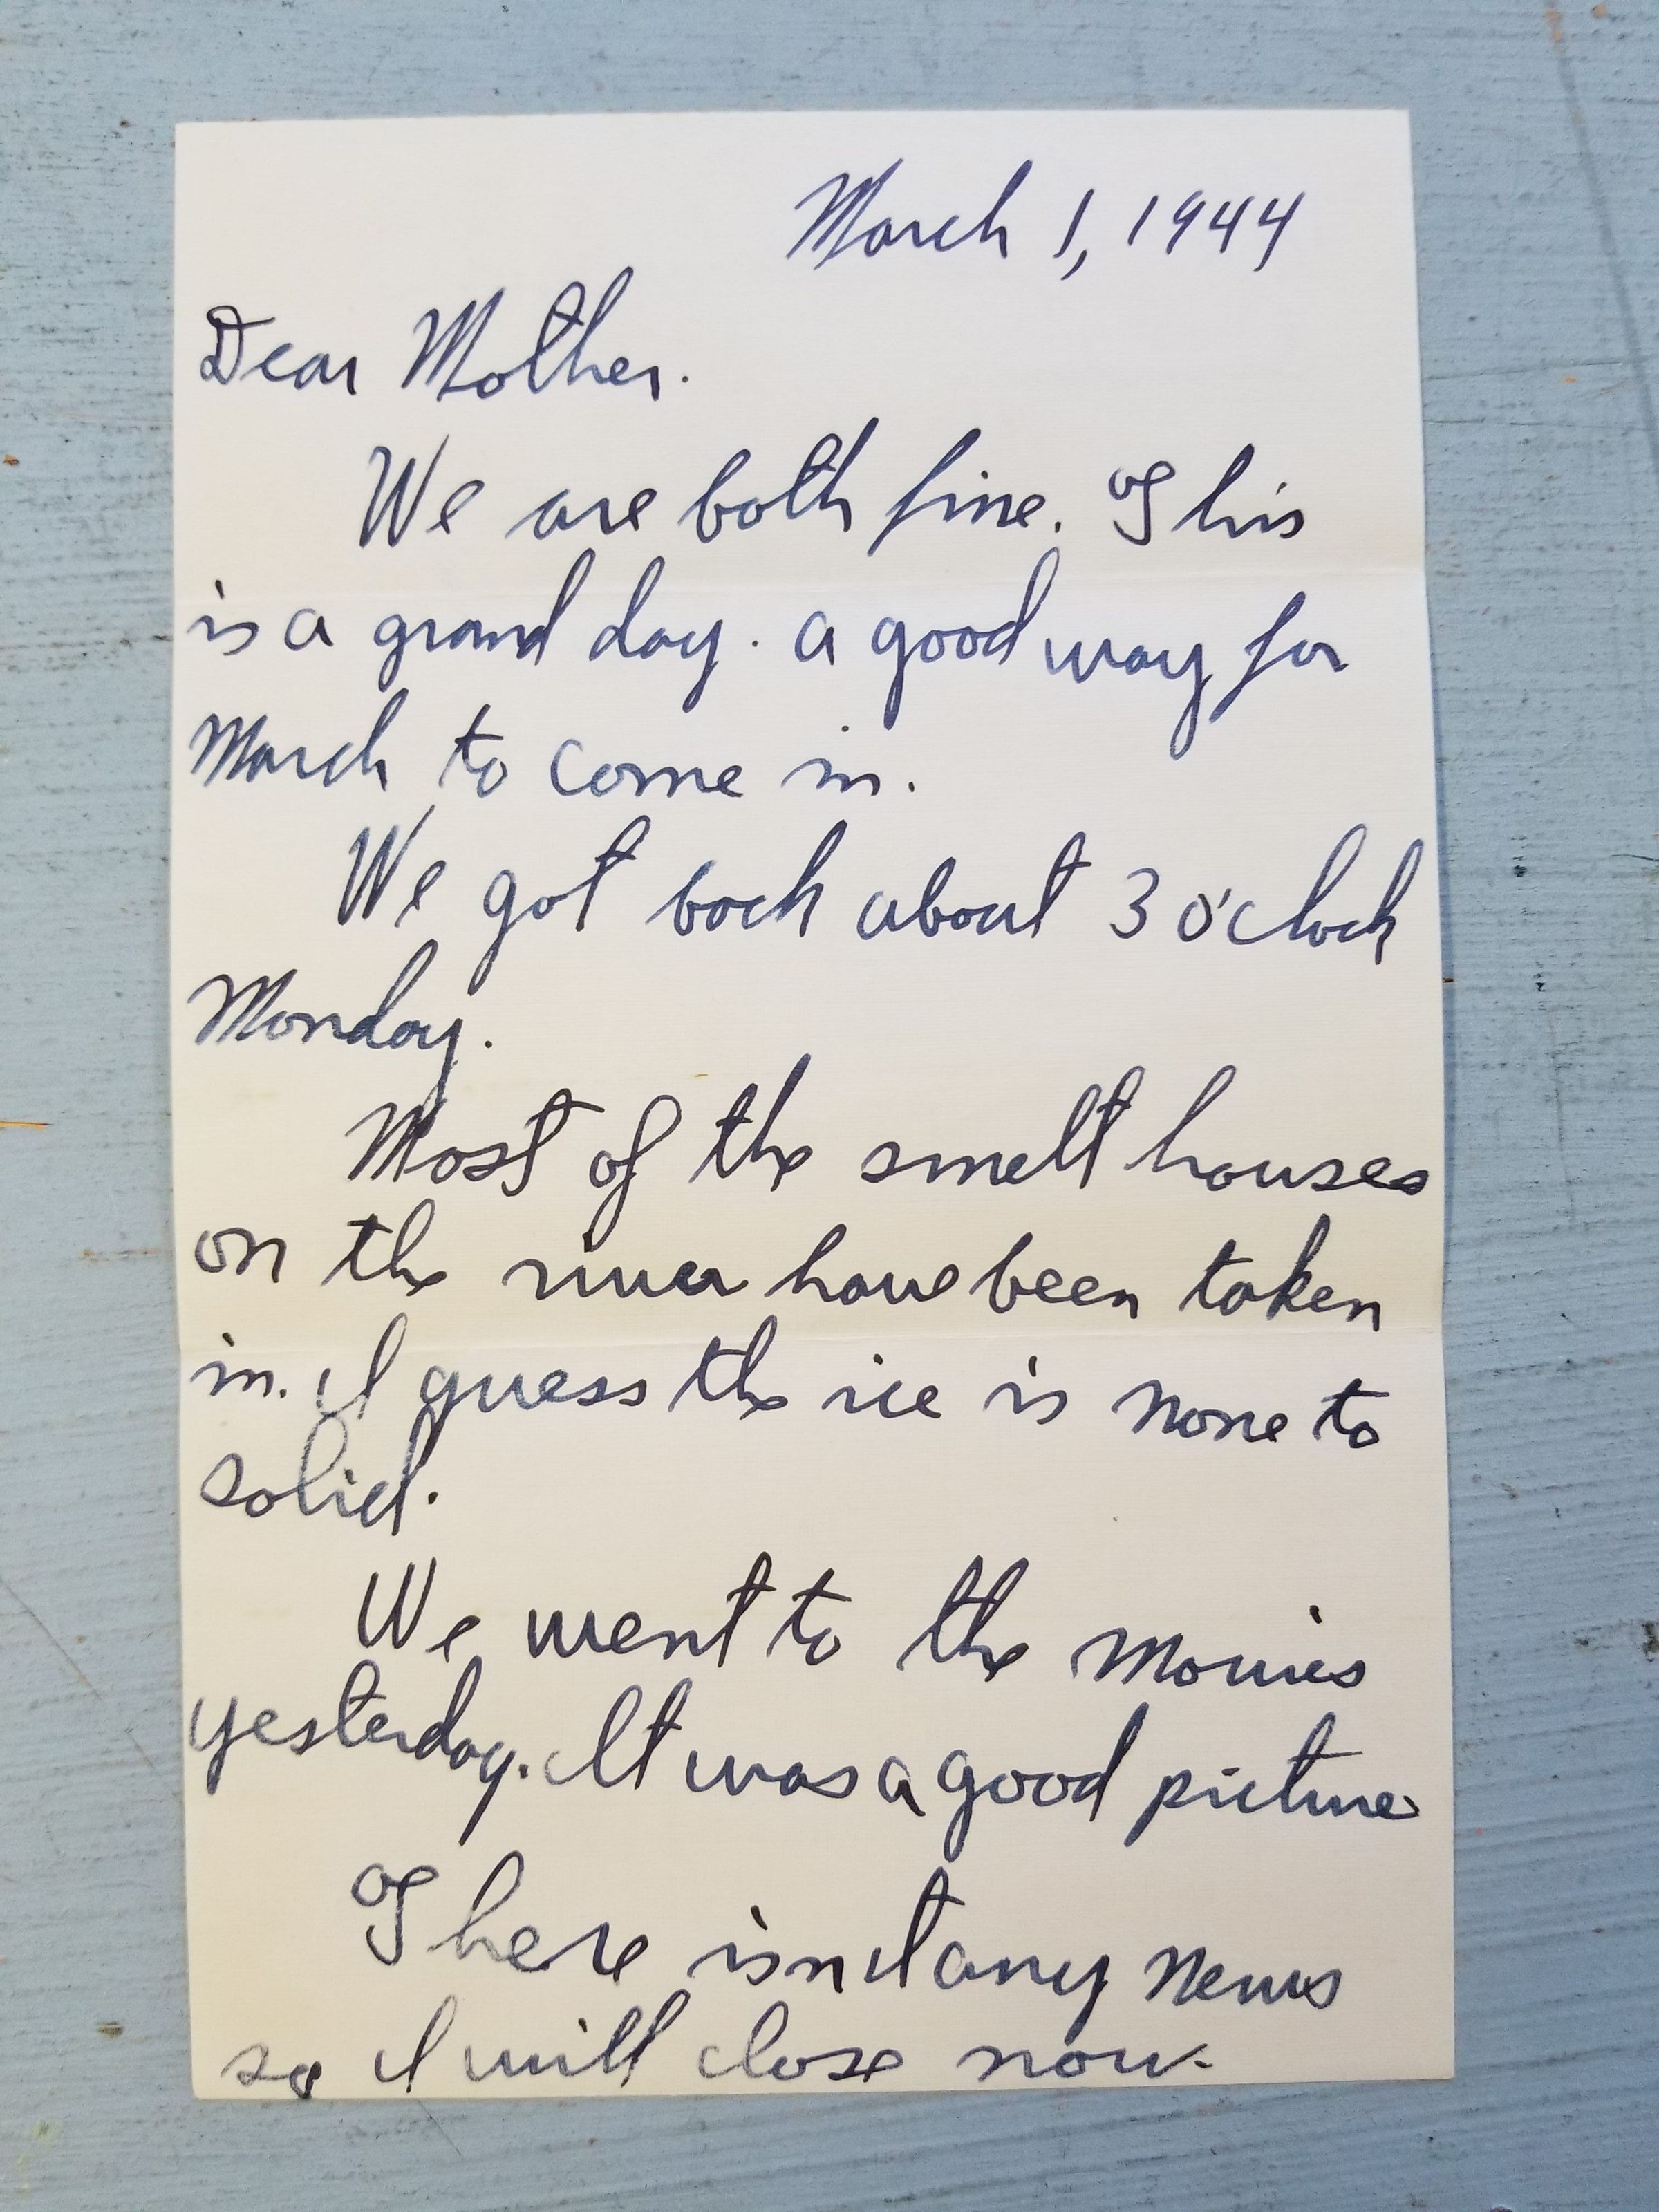 March 1, 1944
Dear Mother.
We are both fine. This
is a grand day. a good way for
March to come in.
We got back about 3 o'clock
Monday.
Most of the smelt houses
on the river have been taken
in. I guess the ice is none to
solid.
We went to the movies
yesterday. It was a good picture
There isn't any news
so I will close now.